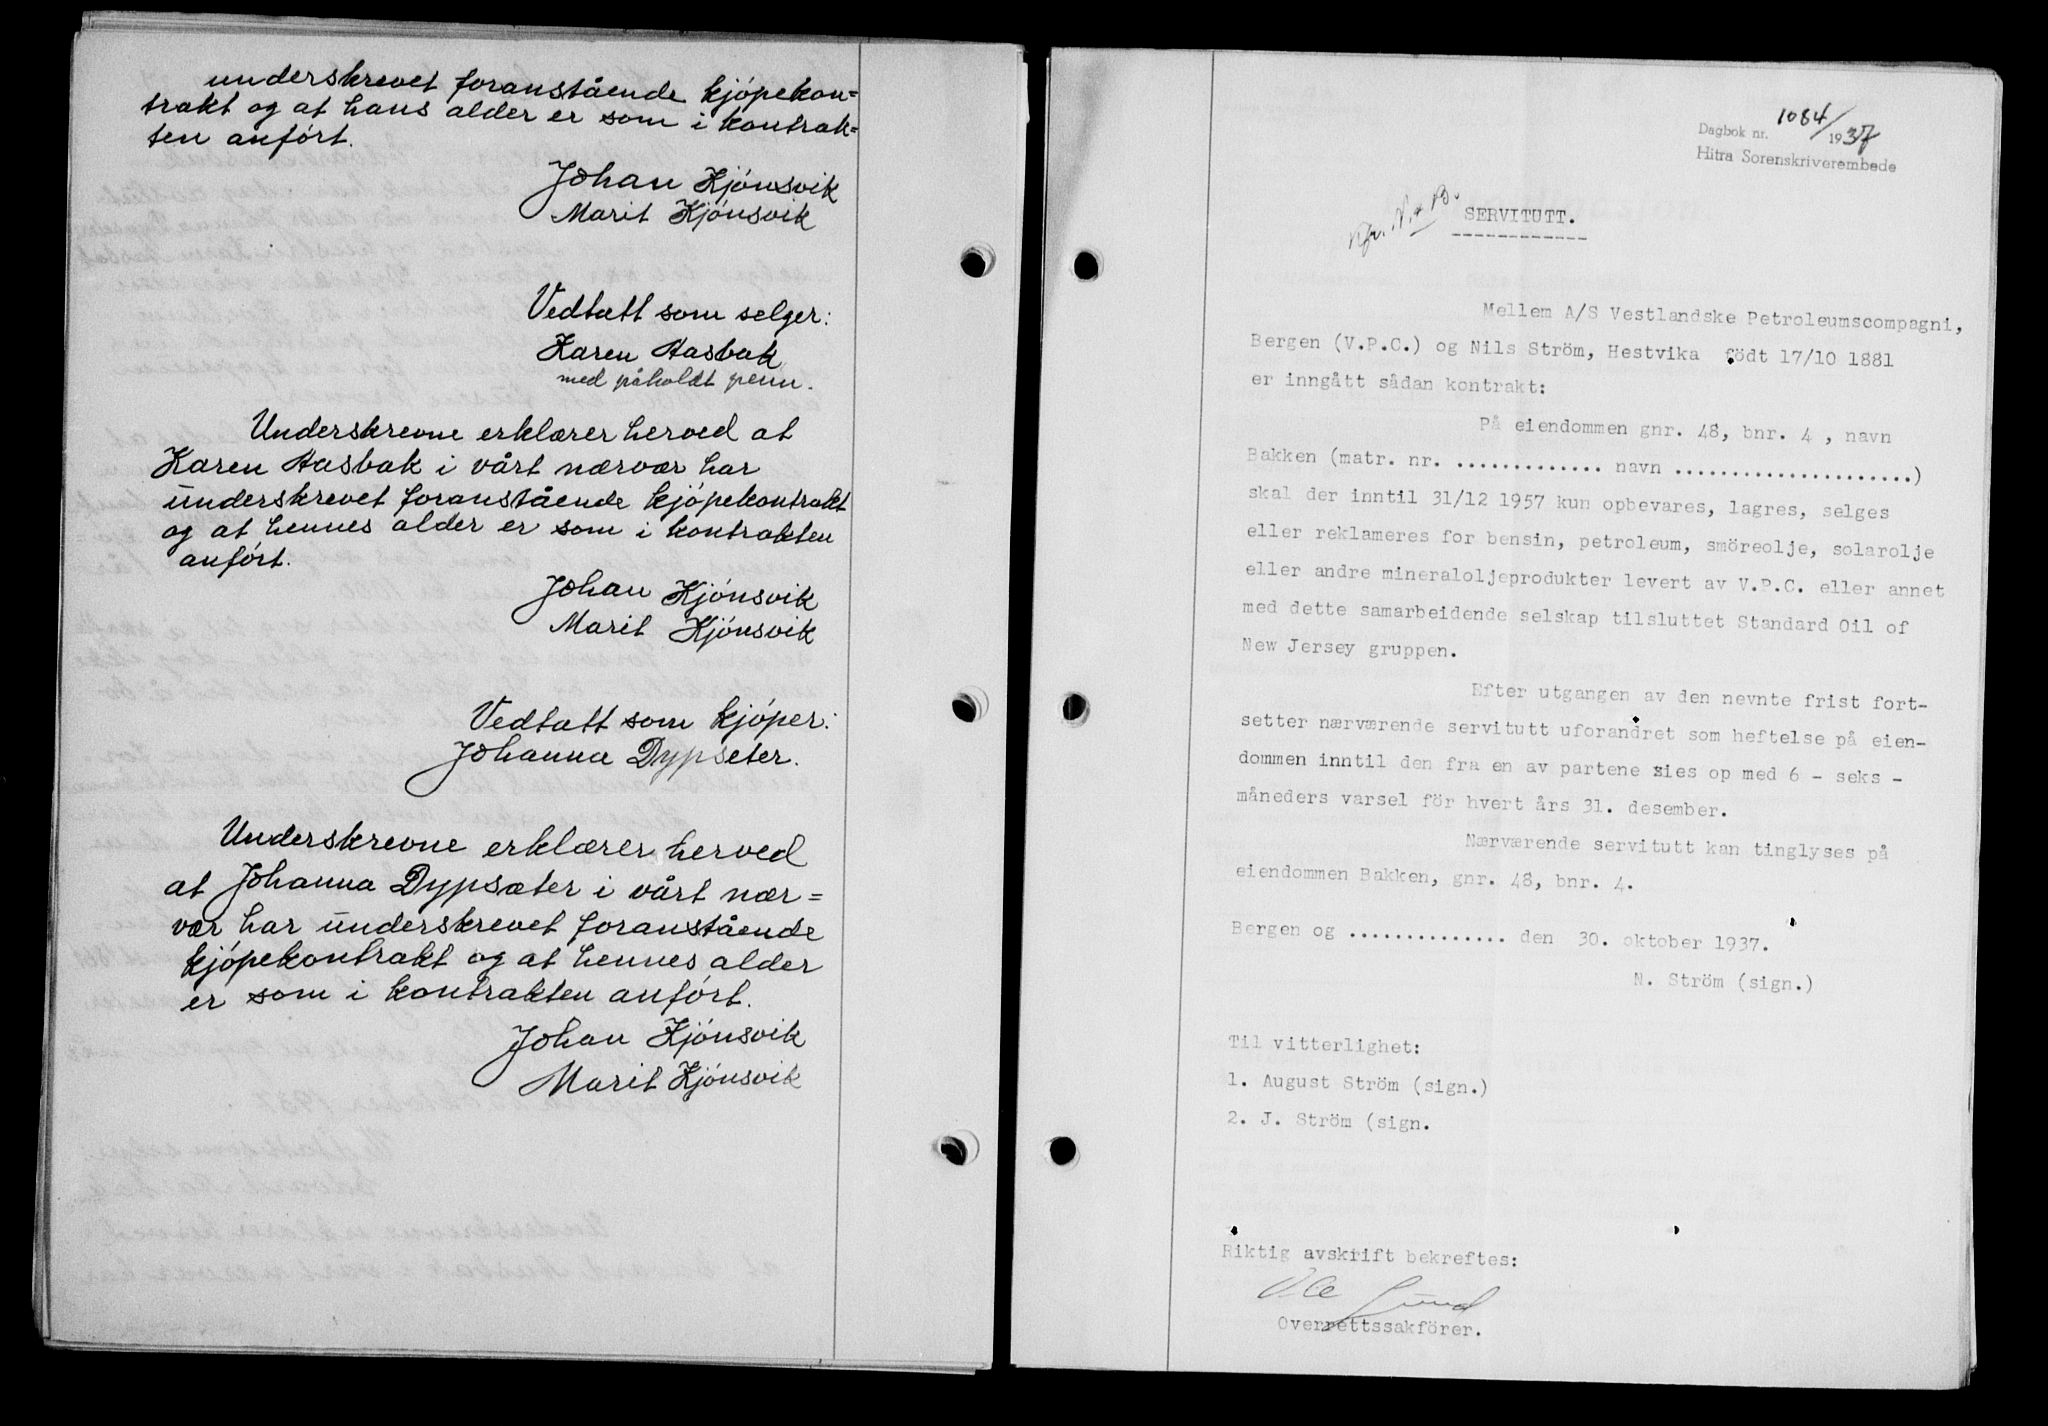 underskrevet foranstående kjöpekon=
trakt og at hans alder er som i kontrak=
ten anfört.
Johan Kjönsvik
Marit Kjönsvik
Vedtatt som selger:
Karen Hasbak
med påholdt penn.
Underskrevne erklærer herved at
Karen Hasbak i vårt nærvær har
underskrevet foranstående kjöpekontrakt
og at hennes alder er som i kontrakten
anfört.
Johan Kjönsvik
Marit Kjönsvik
Vedtatt som kjöper:
Johanna Dypseter.
Underskrevne erklærer herved
at Johanna Dypsæter i vårt nær=
vær har underskrevet foranstående
kjöpekontrakt og at hennes alder
er som i kontrakten anfört.
Johan Kjönsvik
Marit Kjönsvik
Dagbok nr. 1084/1937
Hitra Sorenskriverembede
SERVITUTT.
Mellem A/S Vestlandske Petroleumscompagni,
Bergen (V.P.C.) og Nils Ström, Hestvika födt 17/10 1881
er inngått sådan kontrakt:
På eiendommen gnr. 48, bnr. 4 , navn
Bakken (matr. nr. ............. navn .....................)
skal der inntil 31/12 1957 kun opbevares, lagres, selges
eller reklameres for bensin, petroleum, smöreolje, solarolje
eller andre mineraloljeprodukter levert av V.P.C. eller annet
med dette samarbeidende selskap tilsluttet Standard Oil of
New Jersey gruppen.
Efter utgangen av den nevnte frist fort-
setter nærværende servitutt uforandret som heftelse på eien-
dommen inntil den fra en av partene sies op med 6 - seks -
måneders varsel för hvert års 31. desember.
Nærværende servitutt kan tinglyses på
eiendommen Bakken, gnr. 48, bnr. 4.
Bergen og .............. den 30. oktober 1937.
N. Ström (sign.)
Til vitterlighet:
1. August Ström (sign.)
2. J. Ström (sign.
Riktig avskrift bekreftes:
Ole Lund
Overrettssakförer.